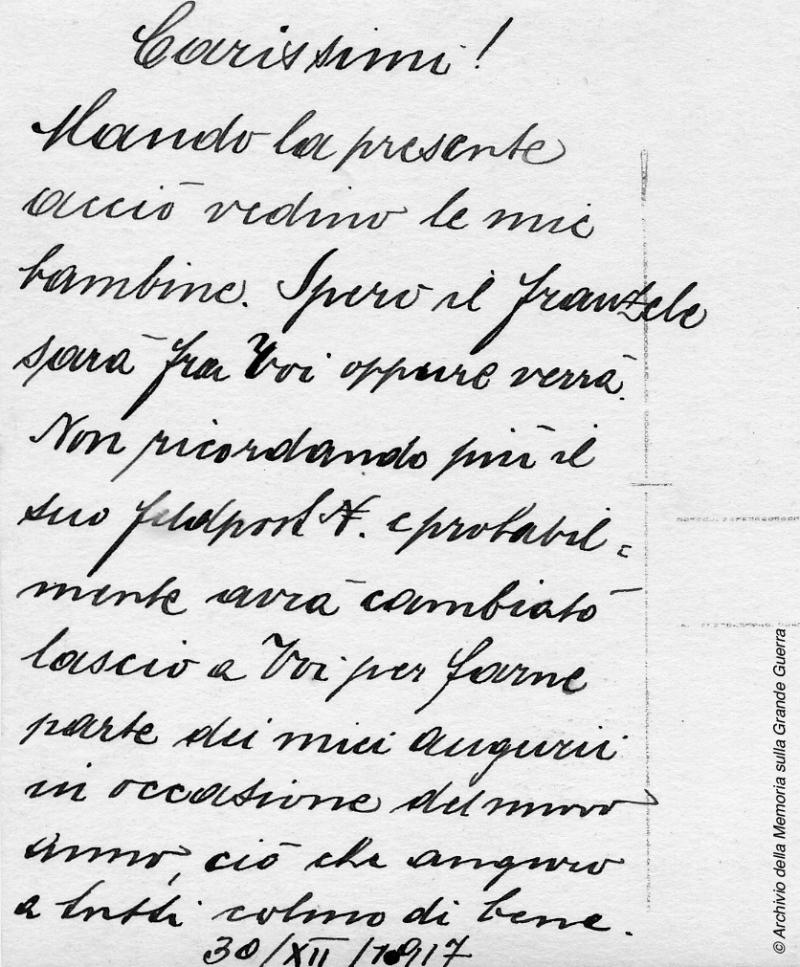 Carissimi!
Mando la presente
acciò vedino le mie
bambine. Spero il franzele
sarà fra Voi oppure verrà.
Non ricordando più il
suo feldpost N. e probabil=
mente avrà cambiato
lascio a Voi per farne
parte dei miei augurii
in occasione del nuovo
anno, ciò che auguro
a tutti colmo di bene.
30/XII/1917
© Archivio della Memoria sulla Grande Guerra